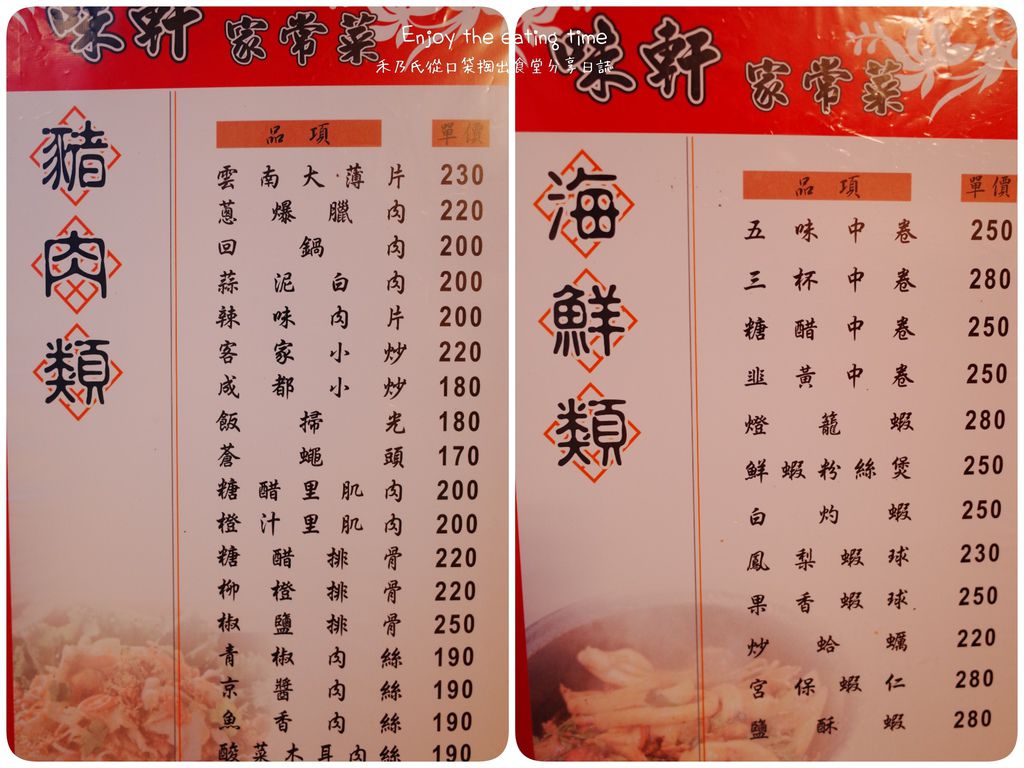 Enjoy the eating time
禾乃氏從口袋掏出食堂分享日誌
味軒 家常菜
豬肉類
品項 單價
雲南大薄片 230
蔥爆臘肉 220
回鍋肉 200
蒜泥白肉 200
辣味肉片 200
客家小炒 220
成都小炒 180
飯掃光 180
蒼蠅頭 170
糖醋里肌肉 200
橙汁里肌肉 200
糖醋排骨 220
柳橙排骨 220
椒鹽排骨 250
青椒肉絲 190
京醬肉絲 190
魚香肉絲 190
酸菜木耳肉絲 190
味軒 家常菜
海鮮類
品項 單價
五味中卷 250
三杯中卷 280
糖醋中卷 250
韭黃中卷 250
燈籠蝦 280
鮮蝦粉絲煲 250
白灼蝦 250
鳳梨蝦球 230
果香蝦球 250
炒蛤蠣 220
宮保蝦仁 280
鹽酥蝦 280